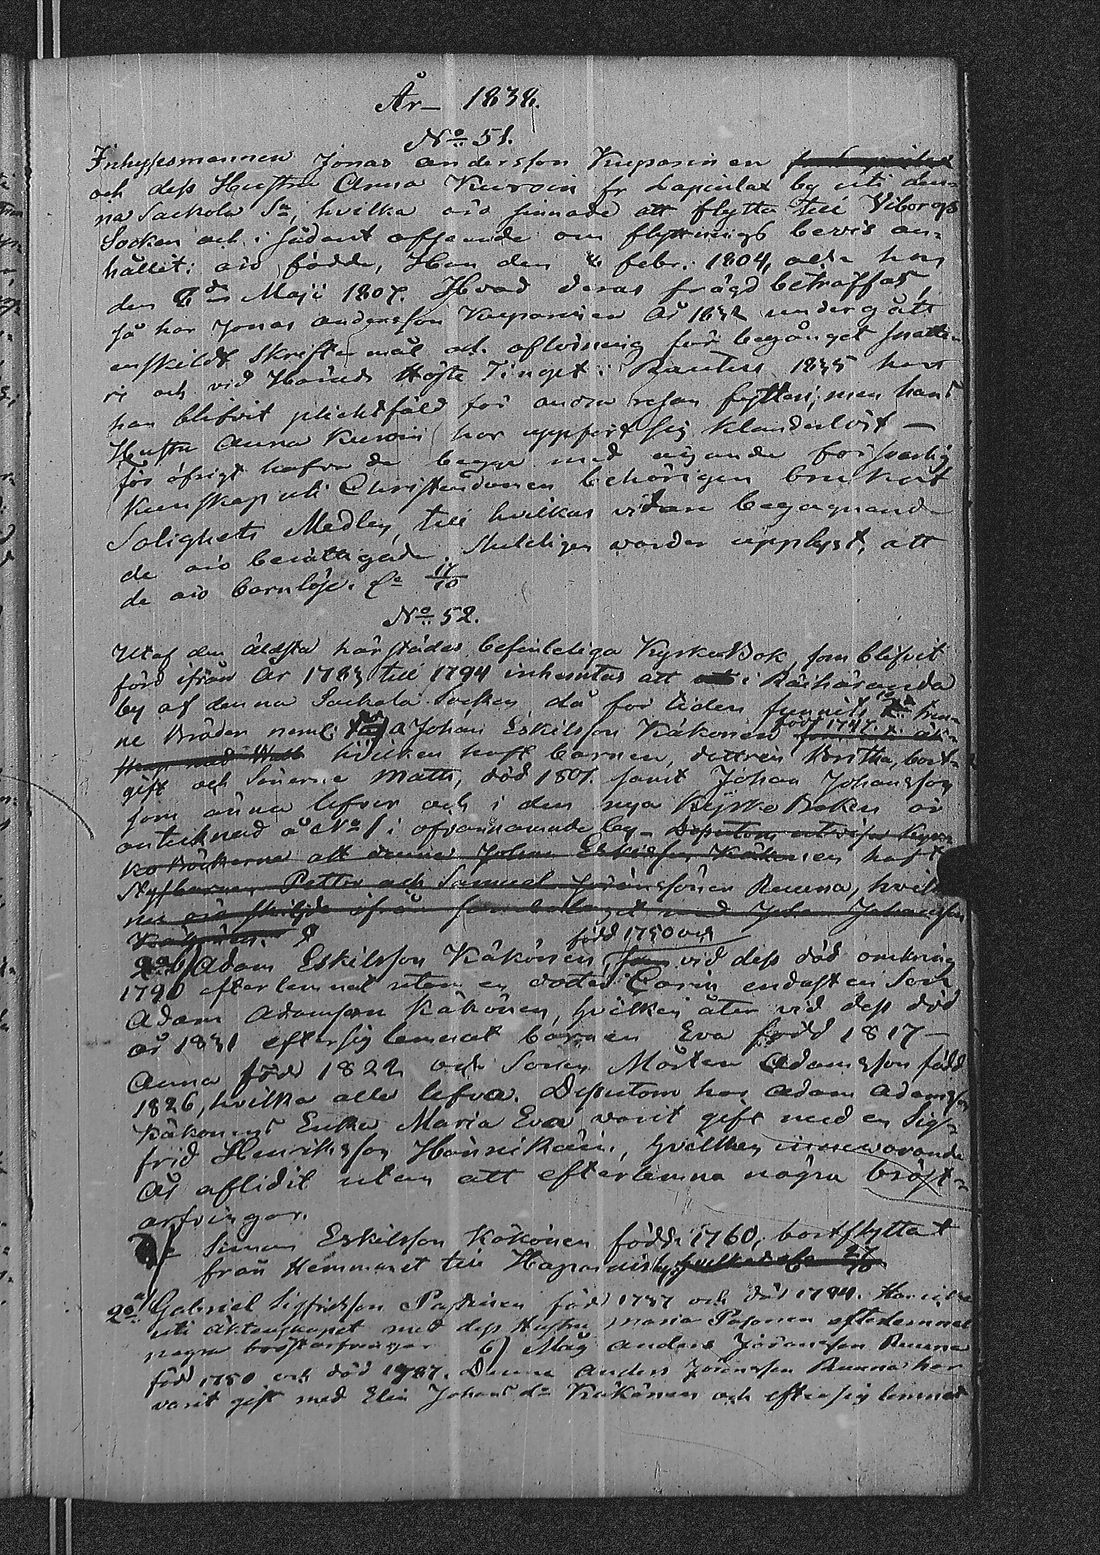 År 1838.
No 51.
Inhyssesmannen Jonas Andersson Kuparinen
och dess Hustru Anna Kuroin fr Lapinlax by uti den-
na Sackola Sn, hvilka äro sinnade att flytta till Viborgs
Socken och i sådant afseende om flyttnings bevis an-
hållit: äro födde, Han den 6 febr. 1804, och hon
den Maji 1807. Hvad deras frägd beträffar,
så har Jonas Andersson Kuparinen År 1832 undergått
enskildt Skriftermål och aflösning för begånget snatte-
ri och vid Härads Höste Tinget i Rautus 1835 har
han blifvit pliktfäld för andra resan fylleri; men hans
Hustru Anna Kuroin har uppfört sig klanderlöst —
för öfrigt hafva de begge med ägande försvarlig
Kunskap uti Christendomen behörigen brukat
Salighets Medlen, till hvilkas vidare begagnande
de äro berättigade. Skuldigen warder upplyst, att
de äro barnlöse. 17/10
No 52.
Utaf den äldsta härstädes befinteliga Kyrko Bok, som blifvit
förd ifrån År 1783 till 1794 inhemtas att i Räihäranda
by af denna Sackola Socken då för tiden funnits
ne Bröder neml. a Johan Eskilsson Käkönen född 1747.
hvilken haft barnen, dottren Bertha, bort-
gift och Sönerne Matts, död 1801 samt Johan Johansson
som ännu lefver och i den nya Kyrko Boken är
antecknad å No 1 i ofvannämnde by - Dessutom utvisa Kyrc-
ko Böckerne att denne Johan Eskilsson Käkönen haft
Styfbarnen Petter och Samuel Jöransöner Ruuna, hvil-
ka äro skilde ifrån sambolaget med Johan Johansson
Käkönen.
född 1750 och
b) Adam Eskilsson Käkönen, som vid dess död omkring
1790 efterlemnat utom en dotter Carin endast en Son
Adam Adamsson Käkönen, hvilken åter vid dess död
år 1831 eftersig lemnat barnen Eva född 1817 —
Anna född 1822 och Sonen Mårten Adamsson född
1826, hvilka alla lefva. Dessutom har Adam Adamsson
Käkönens Enka Maria Eva varit gift med en Sig-
frid Henriksson Hännikäin, hvilken innewarande
År aflidit utan att efterlemna några bröst-
arfvingar.
c Simon Eskilsson Käkönen född 1760, bortflyttat
från Hemmanet till
2o a Gabriel Sigfridsson född 1737 och död 1794. Han
uti äktenskapet med dess Hustru Maria efterlemnat
några bröstarfvingar b) Måg Anders Jöransson Ruuna
född 1750 och död 1787. Denne Anders Jöransson Ruuna har
varit gift med Elin Johans dr Käkönen och efter sig lemnat